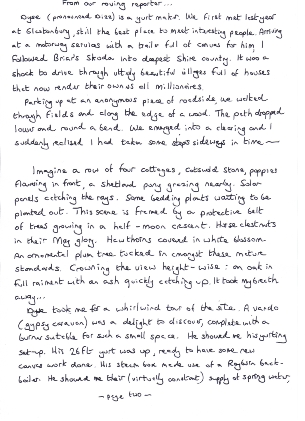 From our roving reporter...
Dyze (pronounced Dize) is a yurt maker. We first met last year
at Glastonbury, still the best place to meet interesting people. Arriving
at a motorway services with a trailer full of canvas for him I
followed Brian's Skoda into deepest Shire county. It was a
shock to drive through utterly beautiful villages full of houses
that now render their owners all millionaires.
Parking up at an anonymous piece of roadside, we walked
through fields and along the edge of a wood. The path dropped
lower and round a bend. We emerged into a clearing and I
suddenly realised I had taken some steps sideways in time ~
Imagine a row of four cottages, Cotswold stone, poppies
flowering in front, a shetland pony grazing nearby. Solar
panels catching the rays. Some bedding plants waiting to be
planted out. This scene is framed by a protective belt
of trees growing in a half-moon crescent. Horse chestnuts
in their May glory. Hawthorns covered in white blossom.
An ornamental plum tree tucked in amongst these mature
standards. Crowning the view height-wise: an oak in
full raiment with an ash quickly catching up. It took my breath
away...
took me for a whirlwind tour of the site. A vardo
(gypsy caravan) was a delight to discover, complete with a
burner suitable for such a small space. He showed me his yurting
set-up. His 26ft yurt was up, ready to have some new
canvas work done. His steam box made use of a Rayburn back-
boiler. He showed me their (virtually constant) supply of spring water,
- page two -